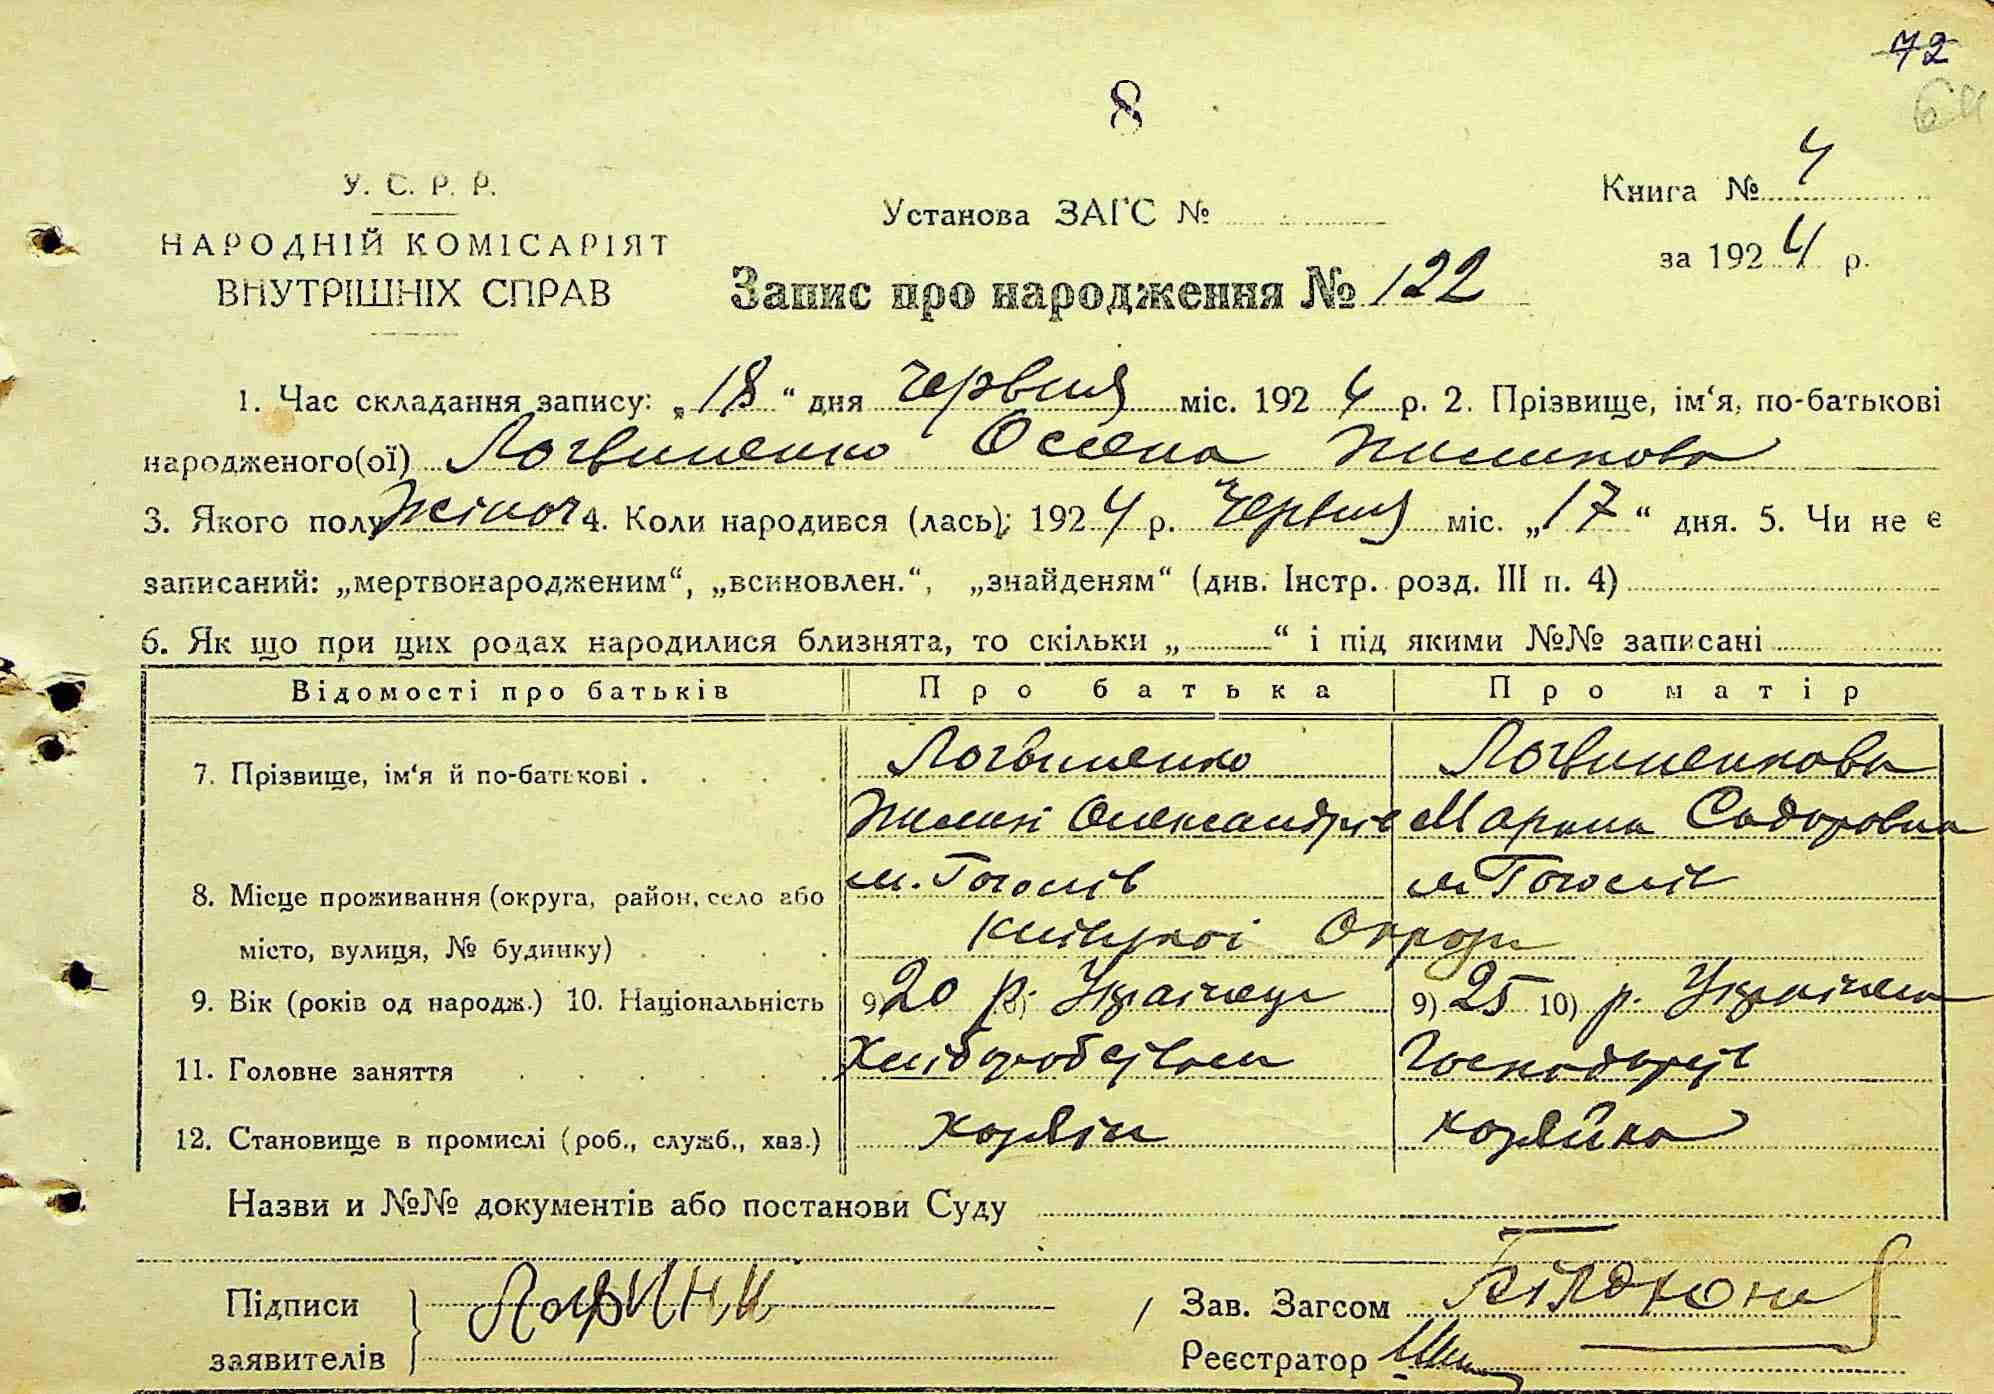 72
64
8
У. С. Р. Р.
НАРОДНІЙ КОМІСАРІЯТ
ВНУТРІШНІХ СПРАВ
Установа ЗАГС №
Книга № 4
за 1924 р.
Запис про народження № 122
1. Час складання запису: „18“ дня червня міс. 1924 р. 2. Прізвище, ім‘я, по-батькові
народженого(ої) Логвиненко Олена Пилипова
3. Якого полу жіноч 4. Коли народився (лась); 1924 р. Червня міс. „17“ дня. 5. Чи не є
записаний: „мертвонародженим“, „всиновлен.“, „знайденям“ (див. Інстр. розд. III п. 4)
6. Як що при цих родах народилися близнята, то скільки „ “ і під якими №№ записані
Відомості про батьків Про батька Про матір
7. Прізвище, ім‘я й по-батькові . Логвиненко Логвиненкова
Пилип Олександрів Марина Сидоровна
8. Місце проживання (округа, район, село або м. Гоголів м Гоголів
місто, вулиця, № будинку) Київської Округи
9. Вік (років од народж.) 10. Національність 9) 20 р. Українець 9) 25 10) р. Українка
11. Головне заняття Хліборобством Господарств
12. Становище в промислі (роб., служб., хаз.) хазяїн хазяйка
Назви и №№ документів або постанови Суду
Підписи
заявителів
Зав. Загсом
Реєстратор